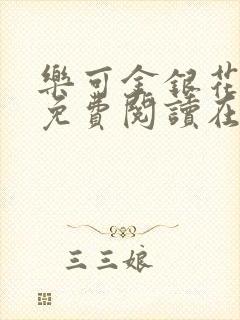 樂可金銀花
免費閱讀在
三三娘